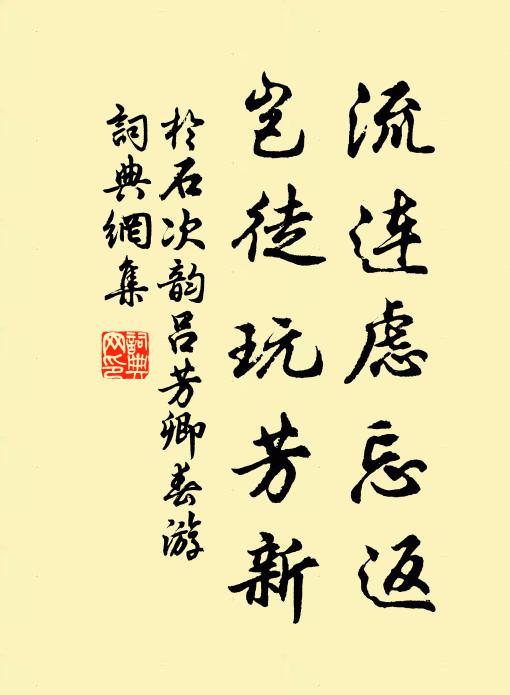 流连虑忘返
岂徒玩芳新
於石次韵吕芳卿春游
詞典網集
詞典
网印